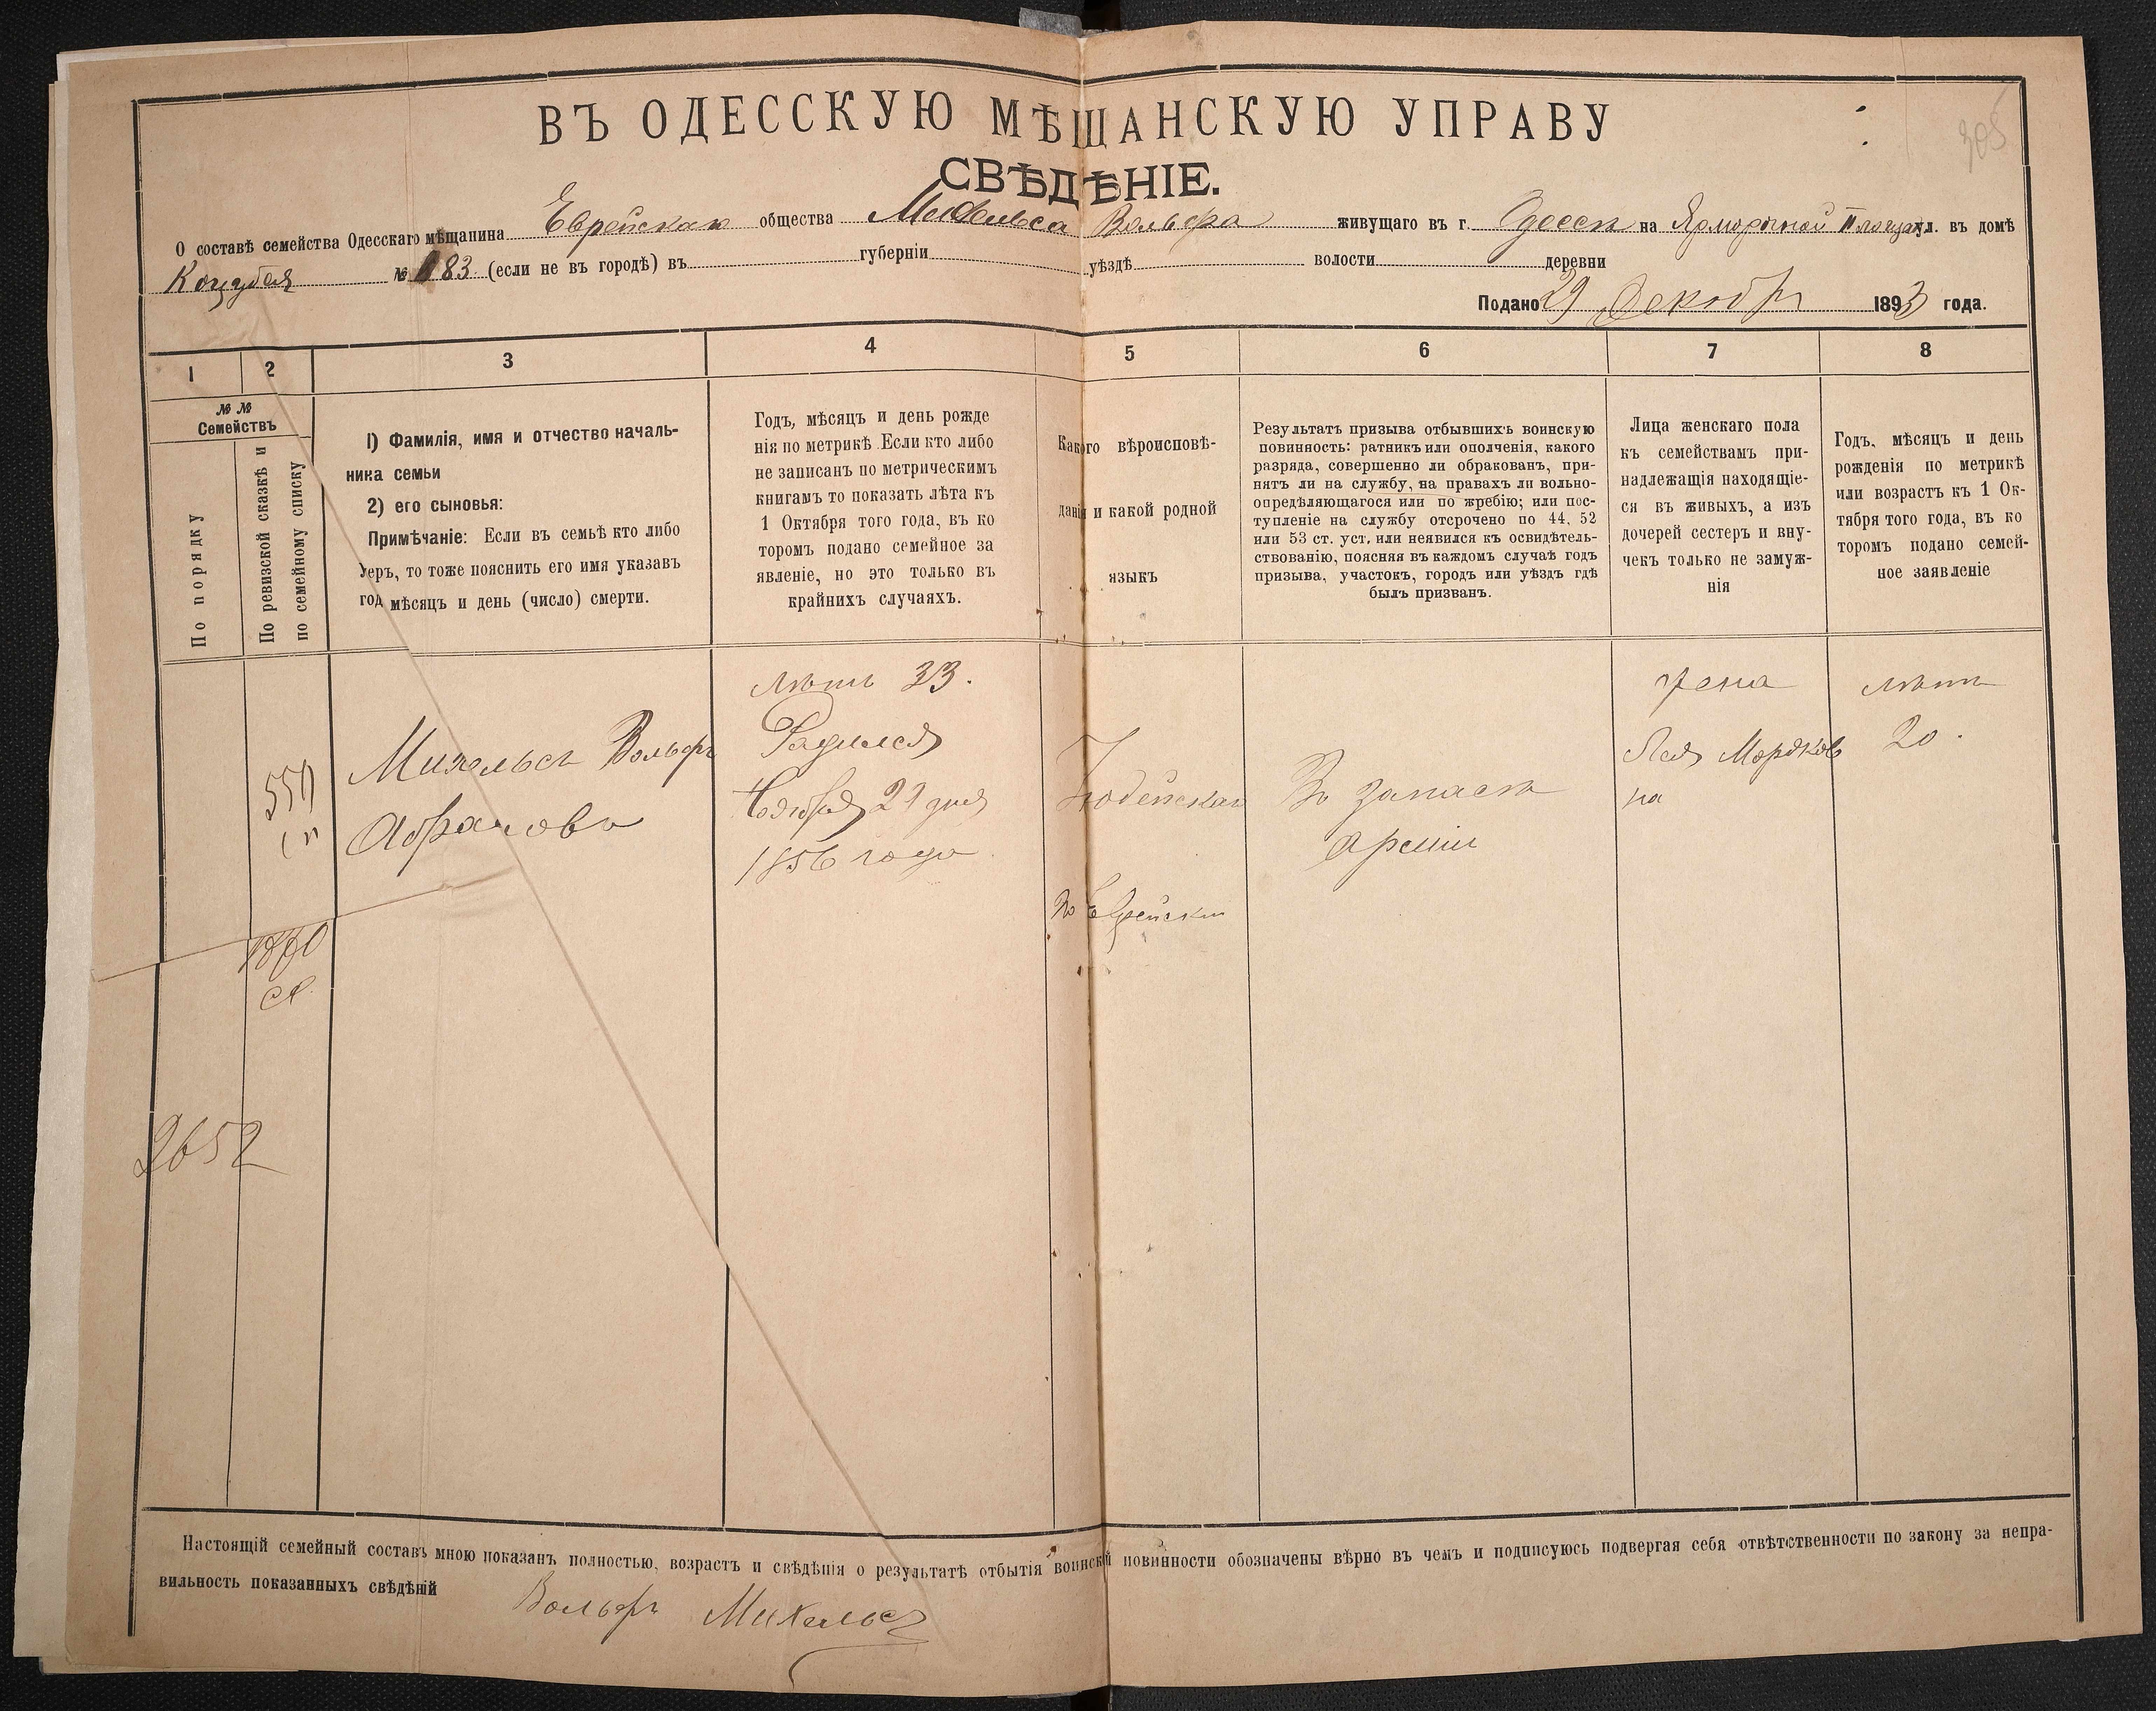 305
ВЪ ОДЕССКУЮ МѢЩАНСКУЮ УПРАВУ
СВѢДѢНІЕ.
О составѣ семейства Одесскаго мѣщанина Еврейскаго общества Михельса Вольфа живущаго въ г. Одессѣ на Ярморочной площади ул. въ домѣ
Коцубея № 83 (если не въ городѣ) въ губерніи уѣздѣ волости деревни
Подано 29 Декабр 1893 года.
1 2 3 4 5 6 7 8
№ №
Семействъ
По порядку
По ревизской сказкѣ и
по семейному списку
1) Фамилія, имя и отчество началь-
ника семьи
2) его сыновья:
Примѣчаніе: Если въ семьѣ кто либо
умеръ, то тоже пояснить его имя указавъ
год мѣсяцъ и день (число) смерти.
Годъ, мѣсяцъ и день рожде
нія по метрикѣ. Если кто либо
не записанъ по метрическимъ
книгамъ то показать лѣта къ
1 Октября того года, въ ко
торомъ подано семейное за
явленіе, но это только въ
крайнихъ случаяхъ.
Какого вѣроисповѣ-
данія и какой родной
языкъ
Результатъ призыва отбывшихъ воинскую
повинность: ратникъ или ополченія, какого
разряда, совершенно ли обракованъ, при-
нятъ ли на службу, на правахъ ли вольно-
опредѣляющагося или по жребію; или пос-
тупленіе на службу отсрочено по 44, 52
или 53 ст. уст. или неявился къ освидѣтель-
ствованію, поясняя въ каждомъ случаѣ годъ
призыва, участокъ, городъ или уѣздъ гдѣ
былъ призванъ.
Лица женскаго пола
къ семействамъ при-
надлежащія находящіе-
ся въ живыхъ, а изъ
дочерей сестеръ и вну-
чекъ только не замуж-
нія
Годъ, мѣсяцъ и день
рожденія по метрикѣ
или возрастъ къ 1 Ок-
тября того года, въ ко
торомъ подано семей-
ное заявленіе
559
Михельсъ Вольфъ
Абрамовъ
лѣтъ 33.
Радился
21 дня
1856 года
Іюдейскаго
По Еврейски
Въ запасѣ
арміи
жена
Лея Мордков
на
лѣтъ
20.
2652
Настоящій семейный составъ мною показанъ полностью, возрастъ и свѣдѣнія о результатѣ отбытія воинской повинности обозначены вѣрно въ чемъ и подписуюсь подвергая себя отвѣтственности по закону за непра-
вильность показанныхъ свѣдѣній
Вольфъ Михельсъ